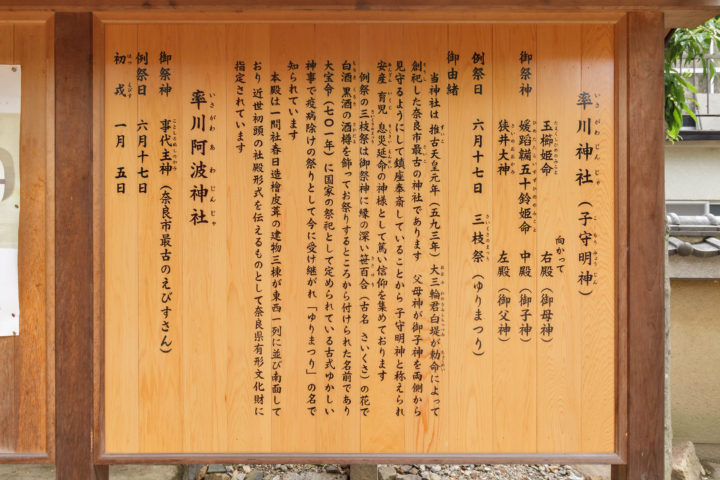 率川神社（子守明神）
向かって
御祭神
玉櫛姫命 右殿（御母神）
媛蹈韛五十鈴姫命 中殿（御子神）
狭井大神 左殿（御父神）
例祭日 六月十七日 三枝祭（ゆりまつり）
御由緒
当神社は 推古天皇元年（五九三年）大三輪君白堤が勅命によって
創祀した奈良市最古の神社であります 父母神が御子神を両側から
見守るようにして鎮座奉斎していることから 子守明神と称えられ
安産 育児 息災延命の神様として篤い信仰を集めております
例祭の三枝祭は御祭神に縁の深い笹百合（古名 さいくさ）の花で
白酒 黒酒の酒樽を飾ってお祭りするところから付けられた名前であり
大宝令（七〇一年）に国家の祭祀として定められている古式ゆかしい
神事で疫病除けの祭りとして今に受け継がれ「ゆりまつり」の名で
知られています
本殿は一間社春日造檜皮葺の建物三棟が東西一列に並び南面して
おり 近世初頭の社殿形式を伝えるものとして奈良県有形文化財に
指定されています
率川阿波神社
御祭神 事代主神（奈良市最古のえびすさん）
例祭日 六月十七日
初戎 一月 五日